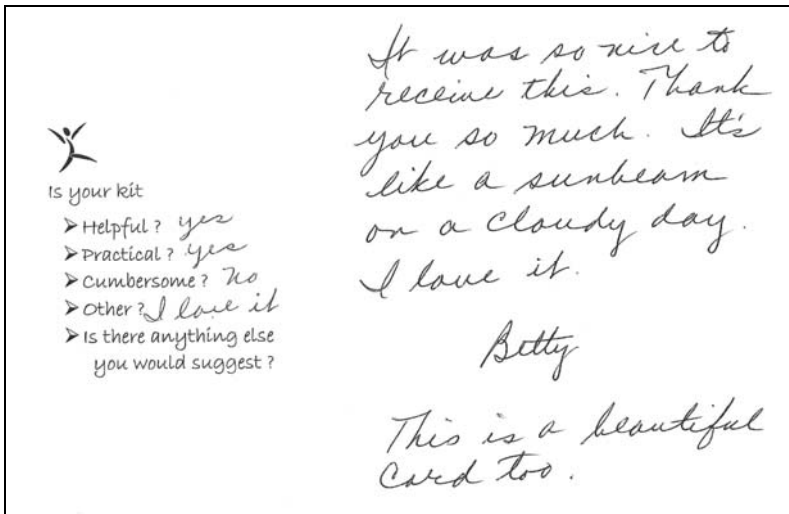 Is your kit
➤Helpful? yes
➤Practical? yes
➤Cumbersome? No
➤Other? I love it
➤Is there anything else
you would suggest?
It was so nice to
receive this. Thank
you so much. It's
like a sunbeam
on a cloudy day.
I love it.
Betty
This is a beautiful
card too.